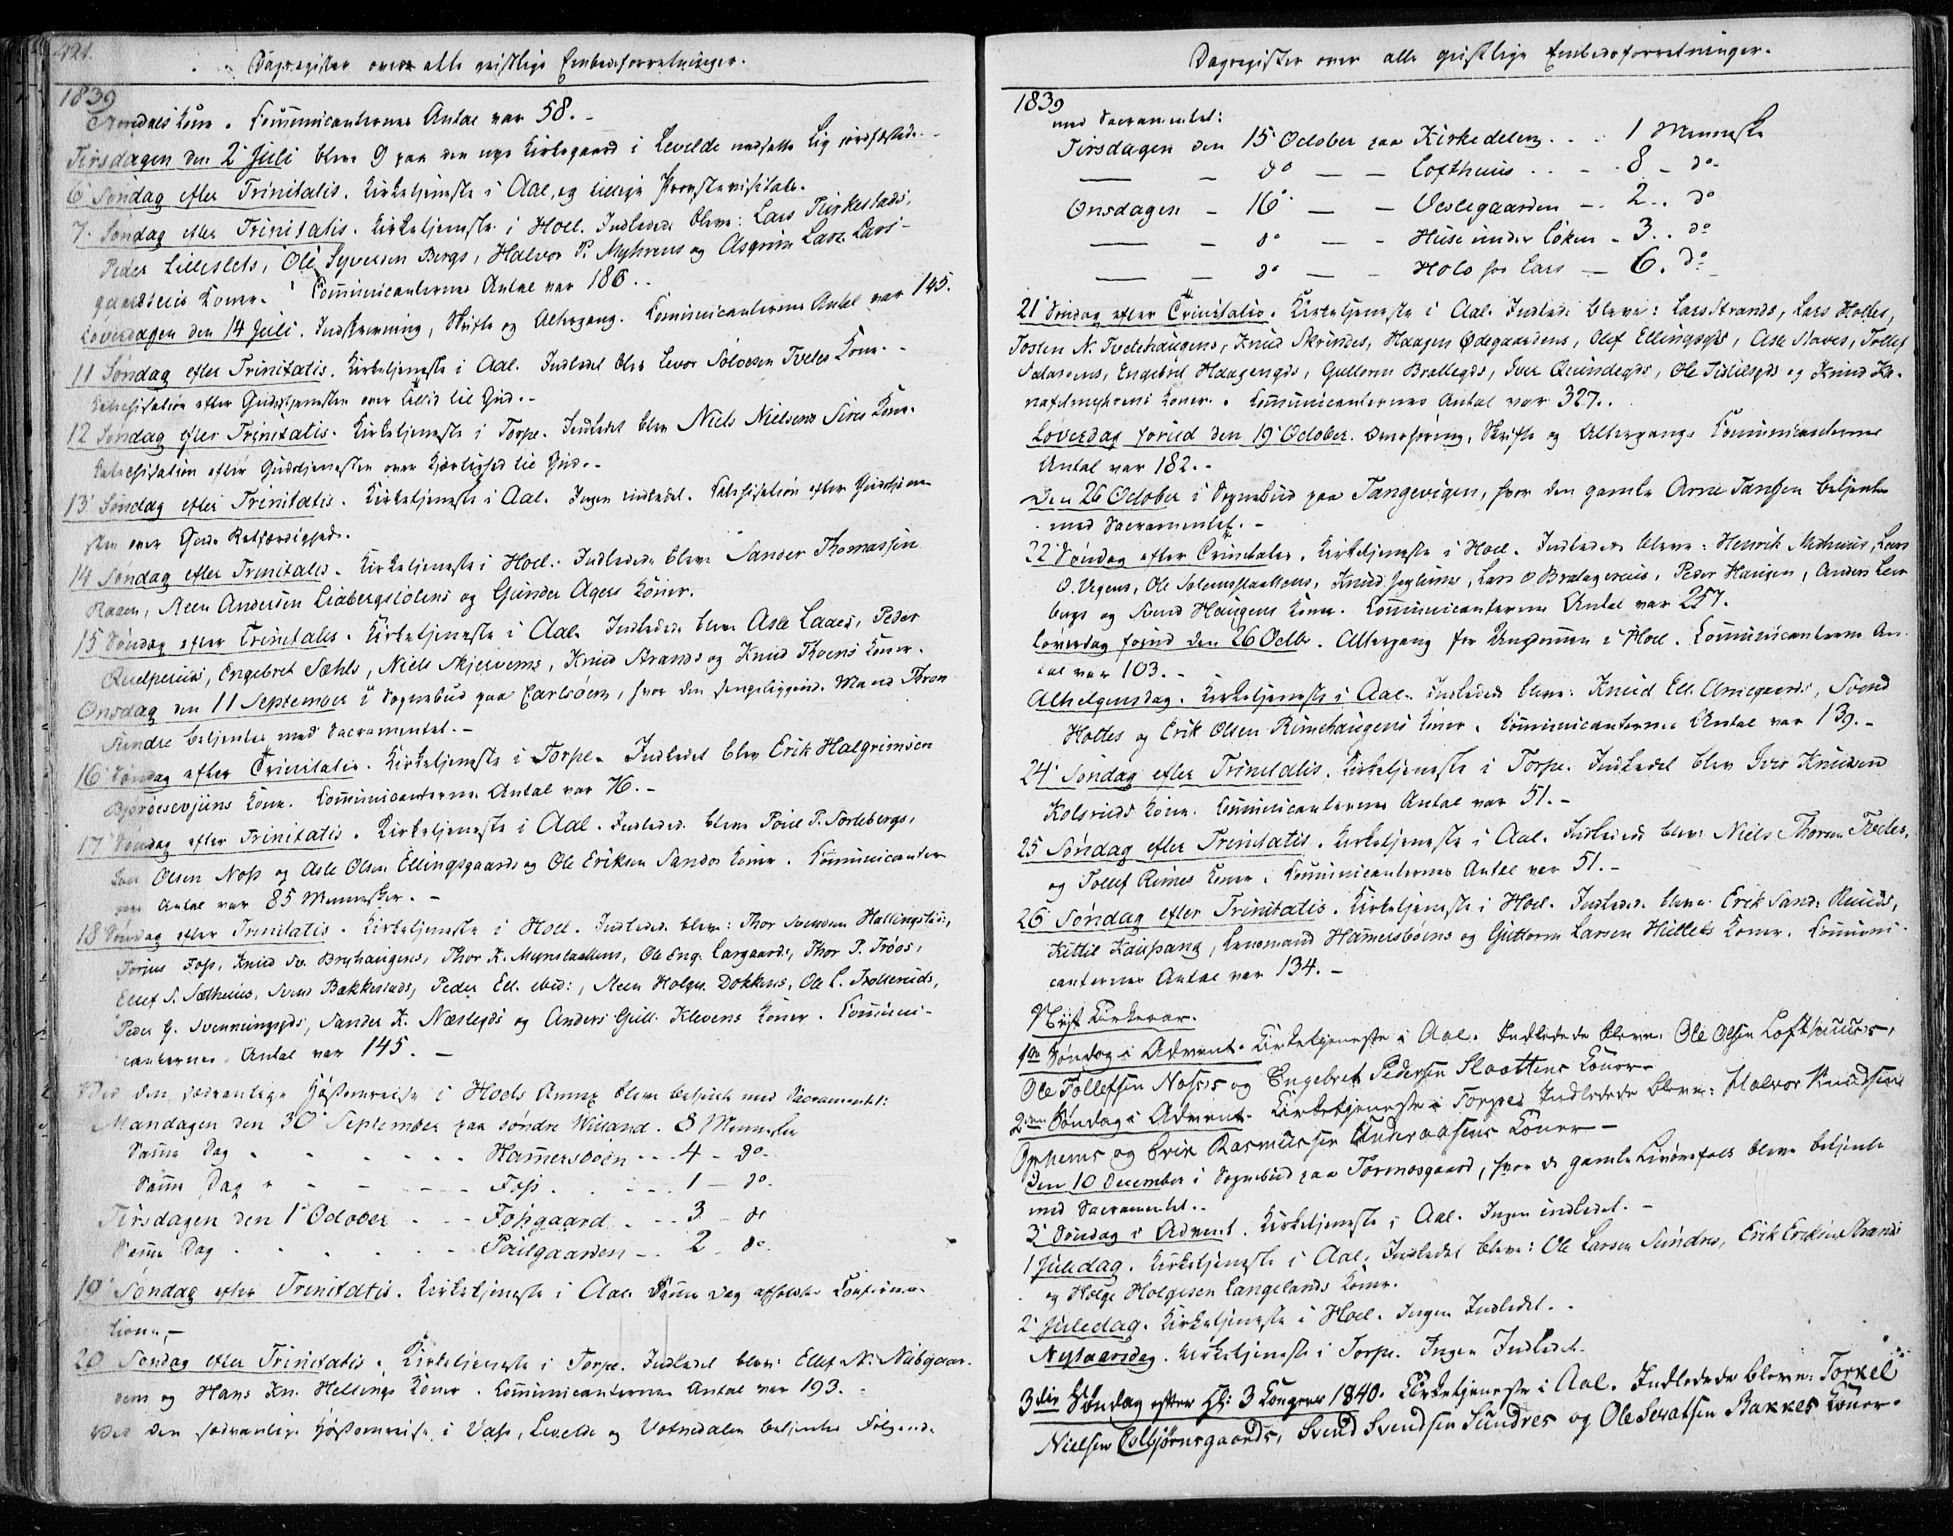 424.
Dagregister over alle geistlige Embedsforretninger.
1839
Koner. Communicanternes Antal var 58. -
Tirsdagen den 2' Juli bleve 9 paa den nye Kirkegaard i Levelde nedsatte Lig jordfæstede. -
6' Søndag efter Trinitatis. Kirketjeneste i Aal, og tillige Provstevisitats.
7' Søndag efter Trinitatis. Kirketjeneste i Hoel. Indledede bleve: Lars
Peder Lilleslets, Ole Syversen Bergs, Halvor P. Myhrens og Asgrim Lars. Lars-
Koner. Communicanternes Antal var 186. .
Løverdagen den 14 Juli. Indskrivning, Skrifte og Altergang. Communicanternes Antal var 145.
11 Søndag efter Trinitatis. Kirketjeneste i Aal. Indledet blev Levor Tvetes Kone. -
Catechisation efter Gudstjenesten over Tillid til Gud. -
12 Søndag efter Trinitatis. Kirketjeneste i Torpe. Indledet blev Niels Nielsens Sires Kone.
Catechisation efter Gudstjenesten over Kjærlighed til Gud. -
13' Søndag efter Trinitatis. Kirketjeneste i Aal. Ingen indledet. Catechisation efter Gudstjene-
sten over Guds Retfærdighed.
14 Søndag efter Trinitatis. Kirketjeneste i Hoel. Indledede bleve Sander Thomassen
Raaen, Neen Andersen Liabergstølens og Gunder Agers Koner.
15 Søndag efter Trinitatis. Kirketjeneste i Aal. Indledede bleve Asle Laaes, Peder
Engebret Sæhts, Niels Skjervems, Knud Strands og Knud Thoens Koner.
Onsdag den 11 September i Sognebud paa, hvor den sengeliggende Mand Thron
Sundre betjentes med Sacramentet. -
16' Søndag efter Trinitatis. Kirketjeneste i Torpe. Indledet blev Erik Halgrimsen
Kone. Communicanternes Antal var 76. -
17' Søndag efter Trinitatis. Kirketjeneste i Aal. Indledede bleve P. Sorlebergs,
Olsen Noss og Asle Olsen Ellingsgaards og Ole Eriksen Sandos Koner. Communicanter-
nes Antal var 85 Mennesker. -
18 Søndag efter Trinitatis. Kirketjeneste i Hoel. Indledede bleve: Thor Svensen Hallingstads,
Torjus Foss, Knud Sv. Bryhaugens, Thor K. Ole Eng. Largaards, Thor P. Troos,
Ellef S. Sætheies, Svend Bakkestads, Peder Ell. ibid:, Neen Holgs. Dokkens, Ole C. Trolleruds,
Peder G. Svenningsgds, Sander K. Næslegds og Anders Gull. Klevens Koner. Communi-
canternes Antal var 145. -
Ved den sædvanlige Høstomreise i Hoels Annex bleve betjente med Sacramentet:
Mandagen den 30' September paa søndre Villand. 8 Mennesker
Samme Dag - - - - Hamersbøen - - 4 - do.
Samme Dag - - - - Foss. - - - 1 - do.
Tirsdagen den 1' October - - Fossgaard - - 3 - do
Samme Dag - - - - Poulgaarden - - 2 do.
19' Søndag efter Trinitatis. Kirketjeneste i Aal. Samme Dag afholdtes Confirma-
tion. -
20 Søndag efter Trinitatis. Kirketjeneste i Torpe. Indledet bleve Ellef N. Nubgaar-
dens og Hans Kn. Hellings Koner. Communicanternes Antal var 193. -
Ved den sædvanlige Høstomreise i Vats, Levelde og Votnedalen betjentes Følgende
Dagregister over alle geistlige Embedsforretninger.
1839
med Sacramentet:
Tirsdagen den 15' October paa Kirkedelen . . . 1 Menneske
— - do — - Lofthuus . . . 8 - do.
Onsdagen - 16' — - Veslegaarden - . 2 . . do
— - do — - Huse under Løken - 3 . . do
— - do — - Holo hos Lars — 6 . do
21' Søndag efter Trinitatis. Kirketjeneste i Aal. Indledede bleve: Lars Strands, Lars Holtes,
Tosten N. Tvetehaugens, Knud Skrindes, Haagen Ødegaardens, Olef Ellingsgds, Asle Naves, Tollef
Engebret Haagensgds, Guttorm Brattegds, Iver Quindegds, Ole Tidlilgds og Knud Ka-
Koner. Communicanternes Antal var 327. .
Løverdag forud den 19' October. Omhøring, Skrifte og Altergang. Communicanternes
Antal var 182. -
Den 26 October i Sognebud paa Tangevigen, hvor den gamle Arne Tanssen betjentes
med Sacramentet. -
22' Søndag efter Trinitatis. Kirketjeneste i Hoel. Indledede bleve: Henrik Lars
O. Ole Knud Lars O. Peder Haugen, Anders Lein-
bergs og Svend Haugens Koner. Communicanternes Antal var 257.
Løverdag forud den 26 Octbr. Altergang for Ungdommen i Hoel. Communicanternes An-
tal var 103. -
Alhelgensdag. Kirketjeneste i Aal. Indledede bleve: Knud Ell. Svend
Holtes og Erik Olsen Rimehaugens Koner. Communicanternes Antal var 139. -
24' Søndag efter Trinitatis. Kirketjeneste i Torpe. Indledet blev Iver Knudsen
Kolsruds Kone. Communicanternes Antal var 51. -
25 Søndag efter Trinitatis. Kirketjeneste i Aal. Indledede bleve Niels Thoresen Tvetes,
og Tollef Rimes Koner. Communicanternes Antal var 51. -
26 Søndag efter Trinitatis. Kirketjeneste i Hoel. Indledede bleve Erik Sand. Ruuds,
Kittil Kaupang, Lensmand Hamersbøens og Guttorm Larsen Hullets Koner. Communi-
canternes Antal var 134. -
Nyt Kirkeaar.
1ste Søndag i Advent. Kirketjeneste i Aal. Indledede bleve: Ole Olsen Lofthuus's,
Ole Tollefsen Noss's og Engebret Pedersen Slaattens Koner. -
2den Søndag i Advent. Kirketjeneste i Torpe. Indledede bleve: Halvor Knudsen
Opheims og Erik Rasmussen Koner -
Den 10 December i Sognebud paa Tormosgaard, hvor de gamle bleve betjente
med Sacramentet. .
3' Søndag i Advent. Kirketjeneste i Aal. Ingen indledet. -
1 Juledag. Kirketjeneste i Aal. Indledet bleve: Ole Larsen Sundres, Erik Eriksen Strands
og Holge Holgesen Langelands Koner.
2' Juledag. Kirketjeneste i Hoel. Ingen Indledet. .
Nytaarsdag. Kirketjeneste i Torpe. Ingen Indledet.
3die Søndag efter Hl: 3 Konger 1840. Kirketjeneste i Aal. Indledede bleve: Torkel
Nielsen Colbjørnsgaards, Svend Svendsen Sundres og Ole Bakkes Koner.